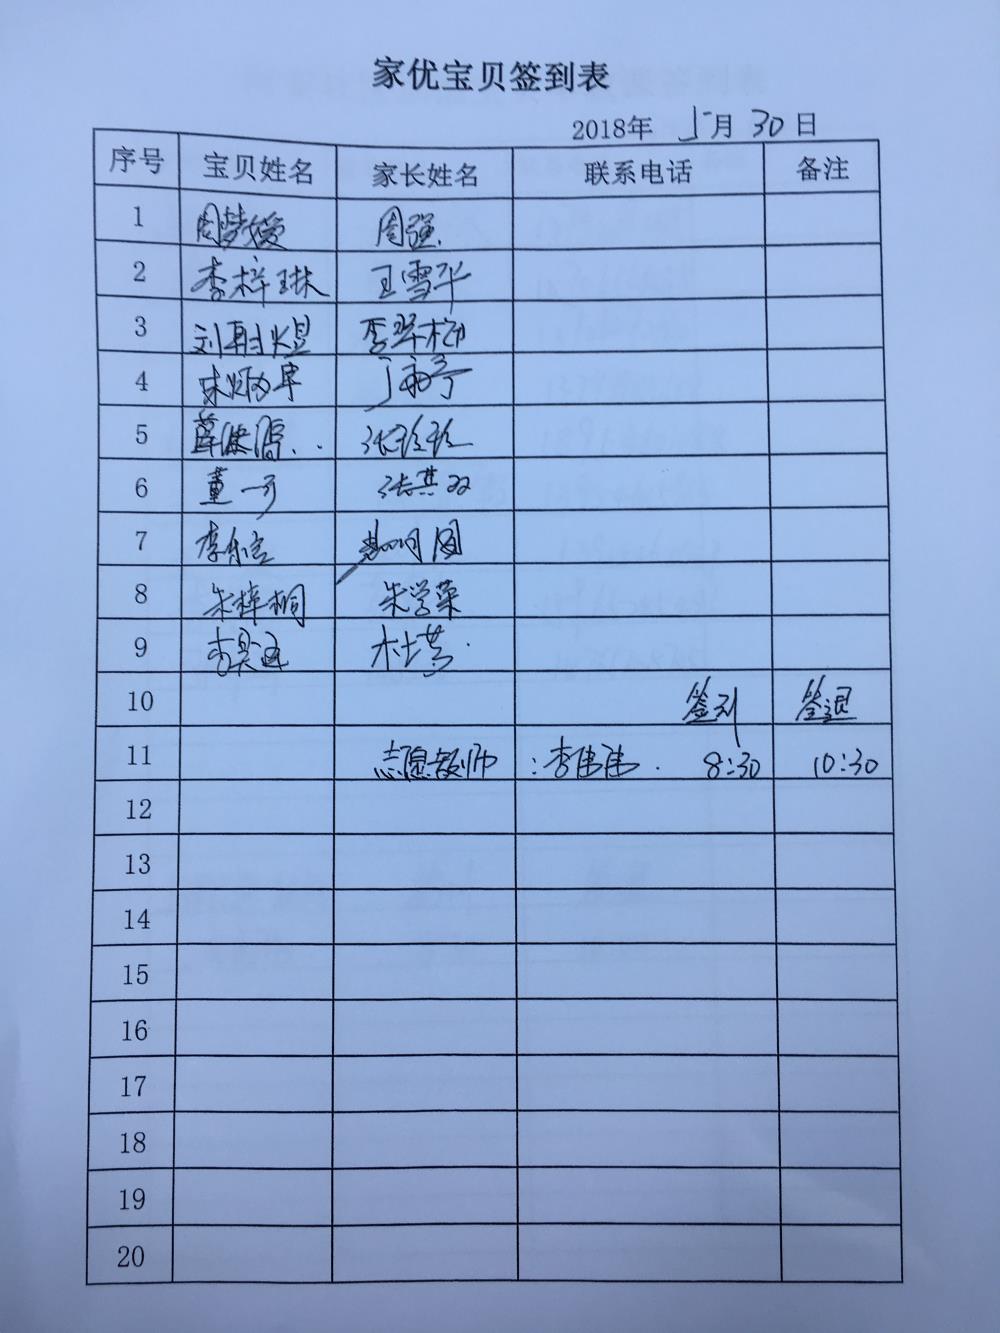 家优宝贝签到表
2018年 5月 30日
序号 宝贝姓名 家长姓名 联系电话 备注
1 周梦媛 周强
2 李梓琳 王雪平
3 刘 煜 李翠柳
4 宋炳
5 薛 张珍珍
6 董一 张其双
7 李乐
8 朱梓桐 朱学荣
9 李昊 杜芳
10 签到 签退
11 志愿教师:李伟伟. 8:30 10:30
12
13
14
15
16
17
18
19
20